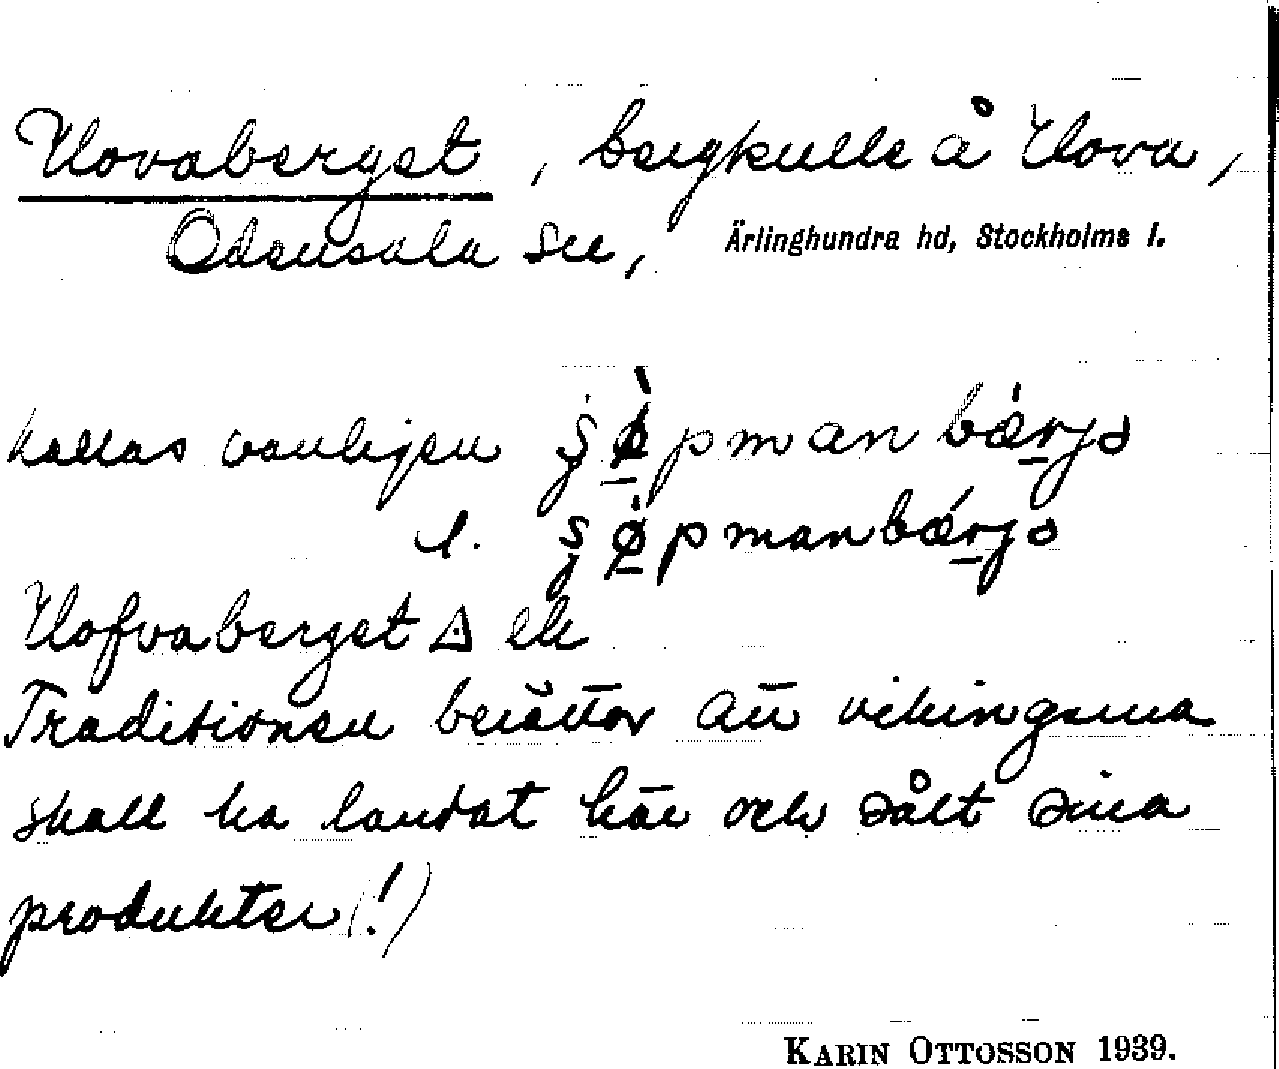 Hovaberget, bergkulle å Hova,
Odensala sn, Ärlinghundra hd, Stockholms l.
kallas vanligen
l.
Hofvaberget △ ek
Traditionen berättar att vikingarna
skall ha landat här och sålt sina
produkter (!)
KARIN OTTOSSON 1939.